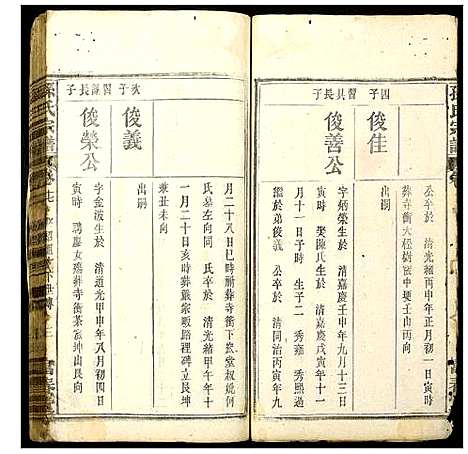 孫氏宗譜
公卒於 清光緒丙申年正月初一日寅時
葬寺衝大桎樹窩中埂壬山丙向
四子
俊佳
出嗣
習具長子
俊善公
字炳榮生於 清嘉慶壬申年九月十三日
寅時 娶陳氏生於 清嘉慶戊寅年十一
月十一日子時 生子二 秀雍 秀熙過
繼於弟俊義 公卒於 清同治丙寅年九
月二十八日巳時祔葬寺衝下衣堂叔妣何
氏墓左向同 氏卒於 清光緒甲午年十
一月二十日亥時葬嚴宗畈路裡碑立艮坤
兼丑未向
次子
俊義
出嗣
習謙長子
俊榮公
字金波生於 清道光甲申年八月初四日
寅時 聘慶女殤葬寺衝茶窩坤山艮向
孫氏宗譜